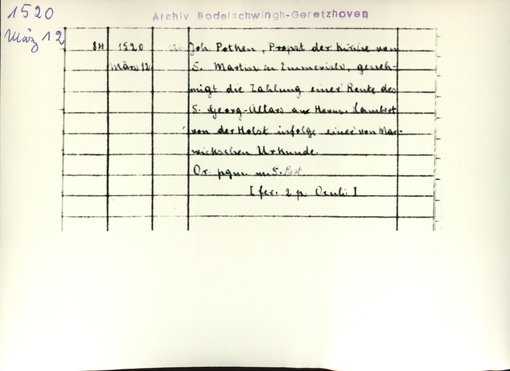 1520
März 12
Archiv Bodelschwingh-Geretzhoven
84 1520 Joh Potken, Propst der Kirche von
März 12. S. Martin in Emmerich, geneh-
migt die Zahlung einer Rente des
S. Georg-Altars an Herm. Lambert
von der Holst infolge einer von Mar-
wickschen Urkunde.
Or. pgm m. S.
[fer. 2 p. Oculi]